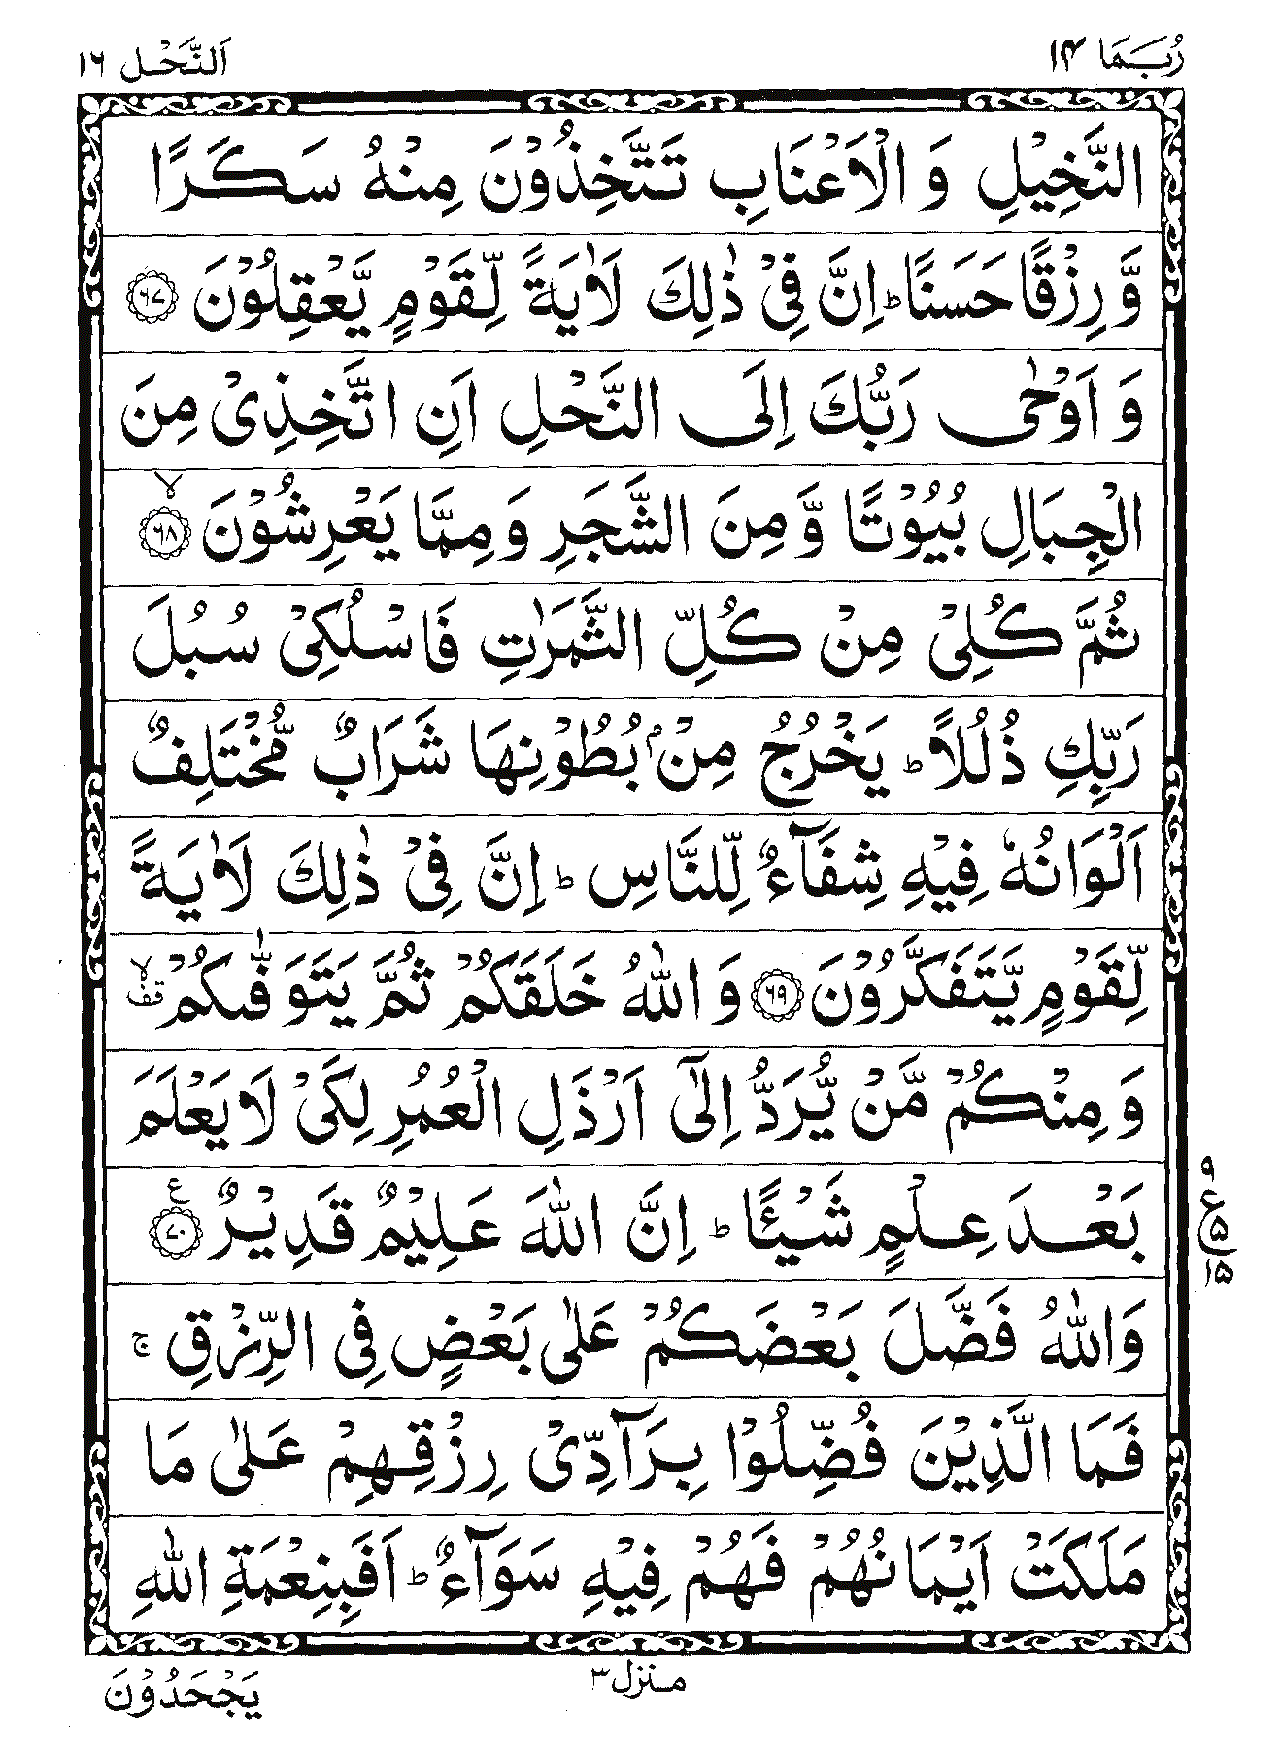 رُبَمَا ۱۴
اَلنَّحْل ۱۶
النَّخِيْلِ وَ الْاَعْنَابِ تَتَّخِذُوْنَ مِنْهُ سَكَرًا
وَّ رِزْقًا حَسَنًا ؕ اِنَّ فِيْ ذٰلِكَ لَاٰيَةً لِّقَوْمٍ يَّعْقِلُوْنَ ﴿۶۷﴾
وَ اَوْحٰى رَبُّكَ اِلَى النَّحْلِ اَنِ اتَّخِذِيْ مِنَ
الْجِبَالِ بُيُوْتًا وَّ مِنَ الشَّجَرِ وَ مِمَّا يَعْرِشُوْنَ ﴿۶۸﴾ ۙ
ثُمَّ كُلِيْ مِنْ كُلِّ الثَّمَرٰتِ فَاسْلُكِيْ سُبُلَ
رَبِّكِ ذُلُلًا ؕ يَخْرُجُ مِنْۢ بُطُوْنِهَا شَرَابٌ مُّخْتَلِفٌ
اَلْوَانُهٗ فِيْهِ شِفَآءٌ لِّلنَّاسِ ؕ اِنَّ فِيْ ذٰلِكَ لَاٰيَةً
لِّقَوْمٍ يَّتَفَكَّرُوْنَ ﴿۶۹﴾ وَ اللّٰهُ خَلَقَكُمْ ثُمَّ يَتَوَفّٰىكُمْ ۙ قف
وَ مِنْكُمْ مَّنْ يُّرَدُّ اِلٰۤى اَرْذَلِ الْعُمُرِ لِكَيْ لَا يَعْلَمَ
بَعْدَ عِلْمٍ شَيْـًٔا ؕ اِنَّ اللّٰهَ عَلِيْمٌ قَدِيْرٌ ﴿۷۰﴾ ع
۹
ع
۵
۱۵
وَاللّٰهُ فَضَّلَ بَعْضَكُمْ عَلٰى بَعْضٍ فِي الرِّزْقِ ۚ
فَمَا الَّذِيْنَ فُضِّلُوْا بِرَآدِّيْ رِزْقِهِمْ عَلٰى مَا
مَلَكَتْ اَيْمَانُهُمْ فَهُمْ فِيْهِ سَوَآءٌ ؕ اَفَبِنِعْمَةِ اللّٰهِ
منزل ۳
يَجْحَدُوْنَ